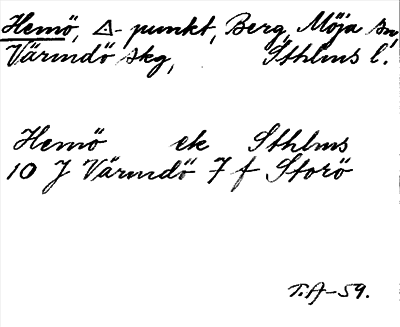 Hemö, △-punkt, Berg, Möja sn,
Värmdö skg, Sthlms l.
Hemö ek Sthlms
10 J Värmdö 7 f Storö
T.A-59.